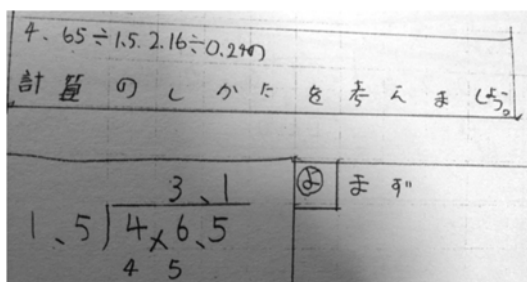 4、65÷1.5. 2.16÷0.24の
計算のしかたを考えましょう。
3、1
1、5)4、6、5
4 5
よ まず